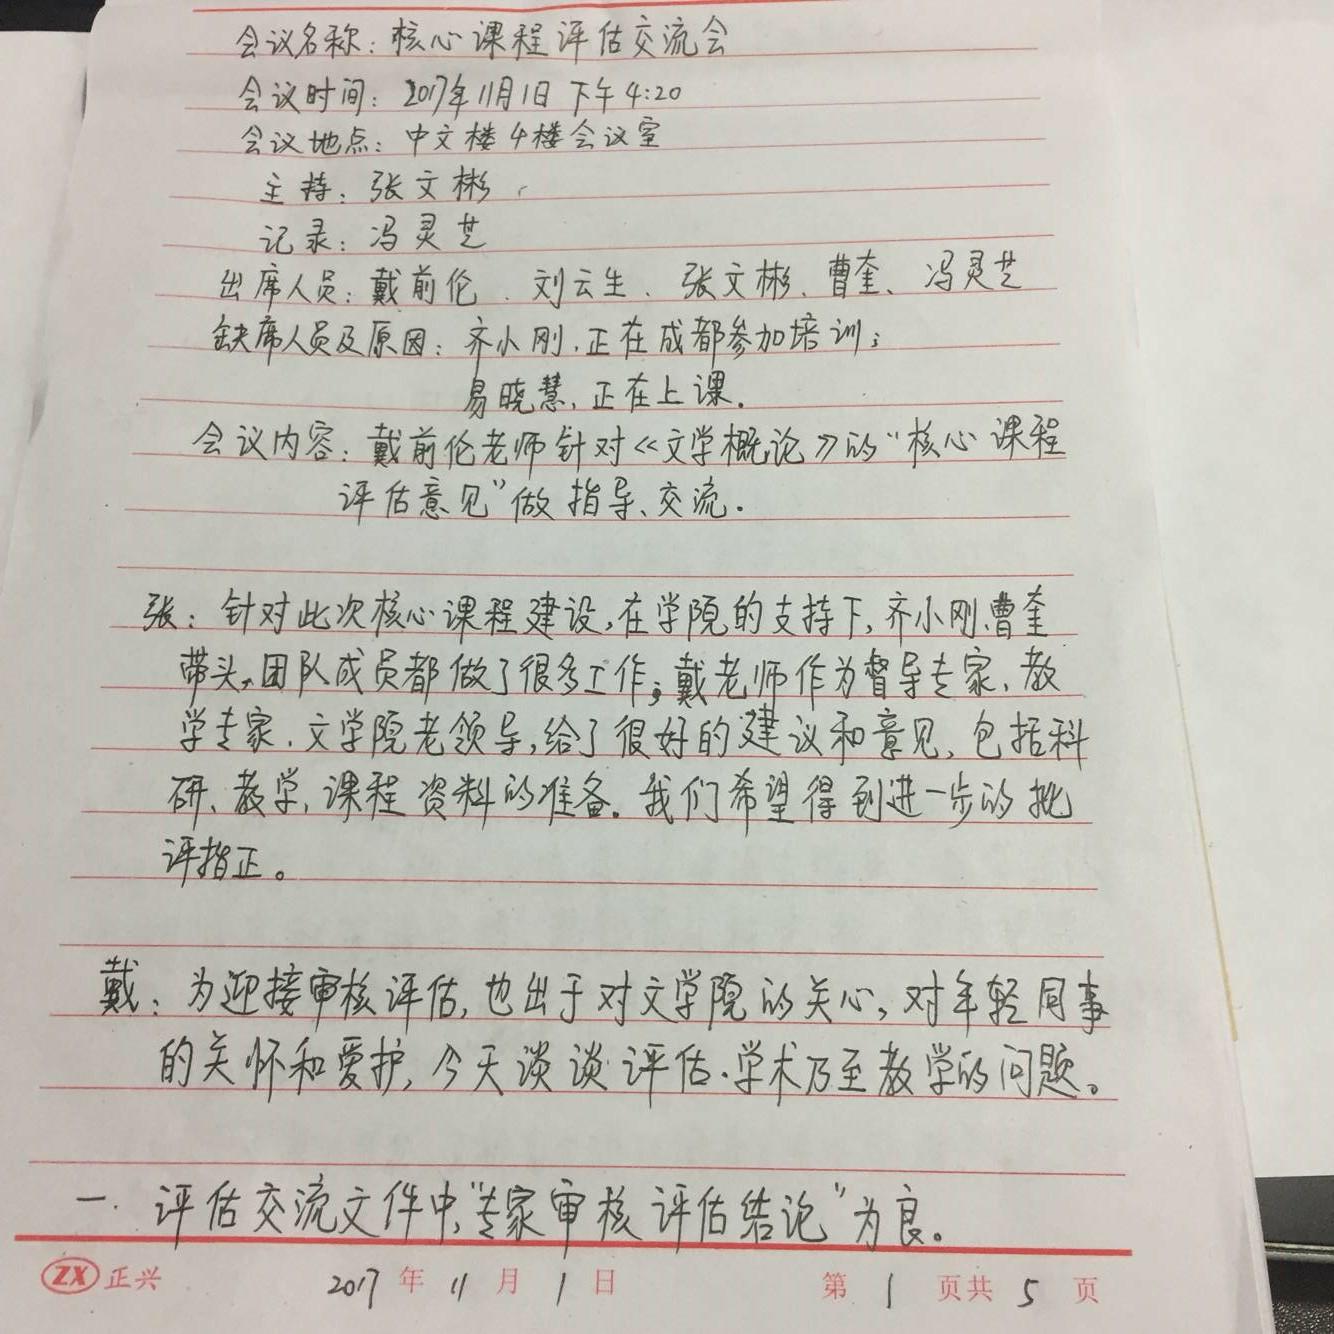 会议名称：核心课程评估交流会
会议时间：2017年11月1日下午4:20
会议地点：中文楼4楼会议室
主持：张文彬
记录：冯灵芝
出席人员：戴前伦、刘云生、张文彬、曹奎、冯灵芝
缺席人员及原因：齐小刚，正在成都参加培训；
易晓慧，正在上课．
会议内容：戴前伦老师针对《文学概论》的“核心课程
评估意见”做指导、交流．
张：针对此次核心课程建设，在学院的支持下，齐小刚、曹奎
带头，团队成员都做了很多工作；戴老师作为督导专家、教
学专家、文学院老领导，给了很好的建议和意见，包括科
研、教学，课程资料的准备。我们希望得到进一步的批
评指正。
戴：为迎接审核评估，也出于对文学院的关心，对年轻同事
的关怀和爱护，今天谈谈评估、学术乃至教学的问题。
一．评估交流文件中，“专家审核评估结论”为良。
ZX 正兴 2017年11月1日 第1页共5页